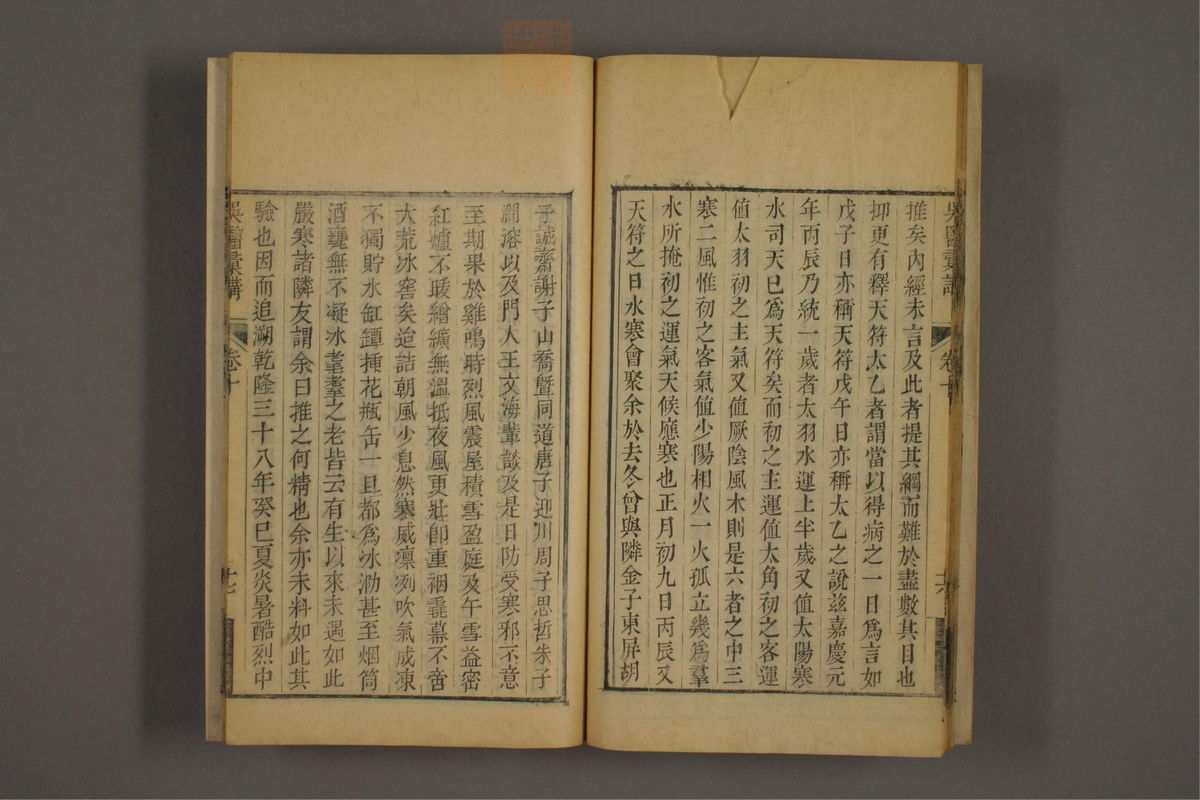 推矣內經未言及此者提其綱而難於盡數其日也
抑更有釋天符太乙者謂當以得病之一日爲言如
戊子日亦稱天符戊午日亦稱太乙之說兹嘉慶元
年丙辰乃統一歲者太羽水運上半歲又值太陽寒
水司天已爲天符矣而初之主運值太角初之客運
值太羽初之主氣又值厥陰風木則是六者之中三
寒二風惟初之客氣值少陽相火一火孤立幾爲羣
水所掩初之運氣天候應寒也正月初九日丙辰又
天符之日水寒會聚余於去冬曾與隣金子東屏胡
子誠齋謝子山喬暨同道唐子迎川周子思哲朱子
澗溶以及門人王文海輩談及是日防受寒邪不意
至期果於雞鳴時烈風震屋積雪盈庭及午雪益密
紅爐不暖繒纊無溫抵夜風更壯卽重裀毳幕不啻
大荒冰窖矣迨詰朝風少息然寒威凛冽吹氣成凍
不獨貯水缸罈揷花瓶缶一旦都爲冰泐甚至烟筒
酒甕無不凝冰耄耋之老皆云有生以來未遇如此
嚴寒諸隣友謂余曰推之何精也余亦未料如此其
驗也因而追溯乾隆三十八年癸巳夏炎暑酷烈中
吳醫彙講
卷十
十七